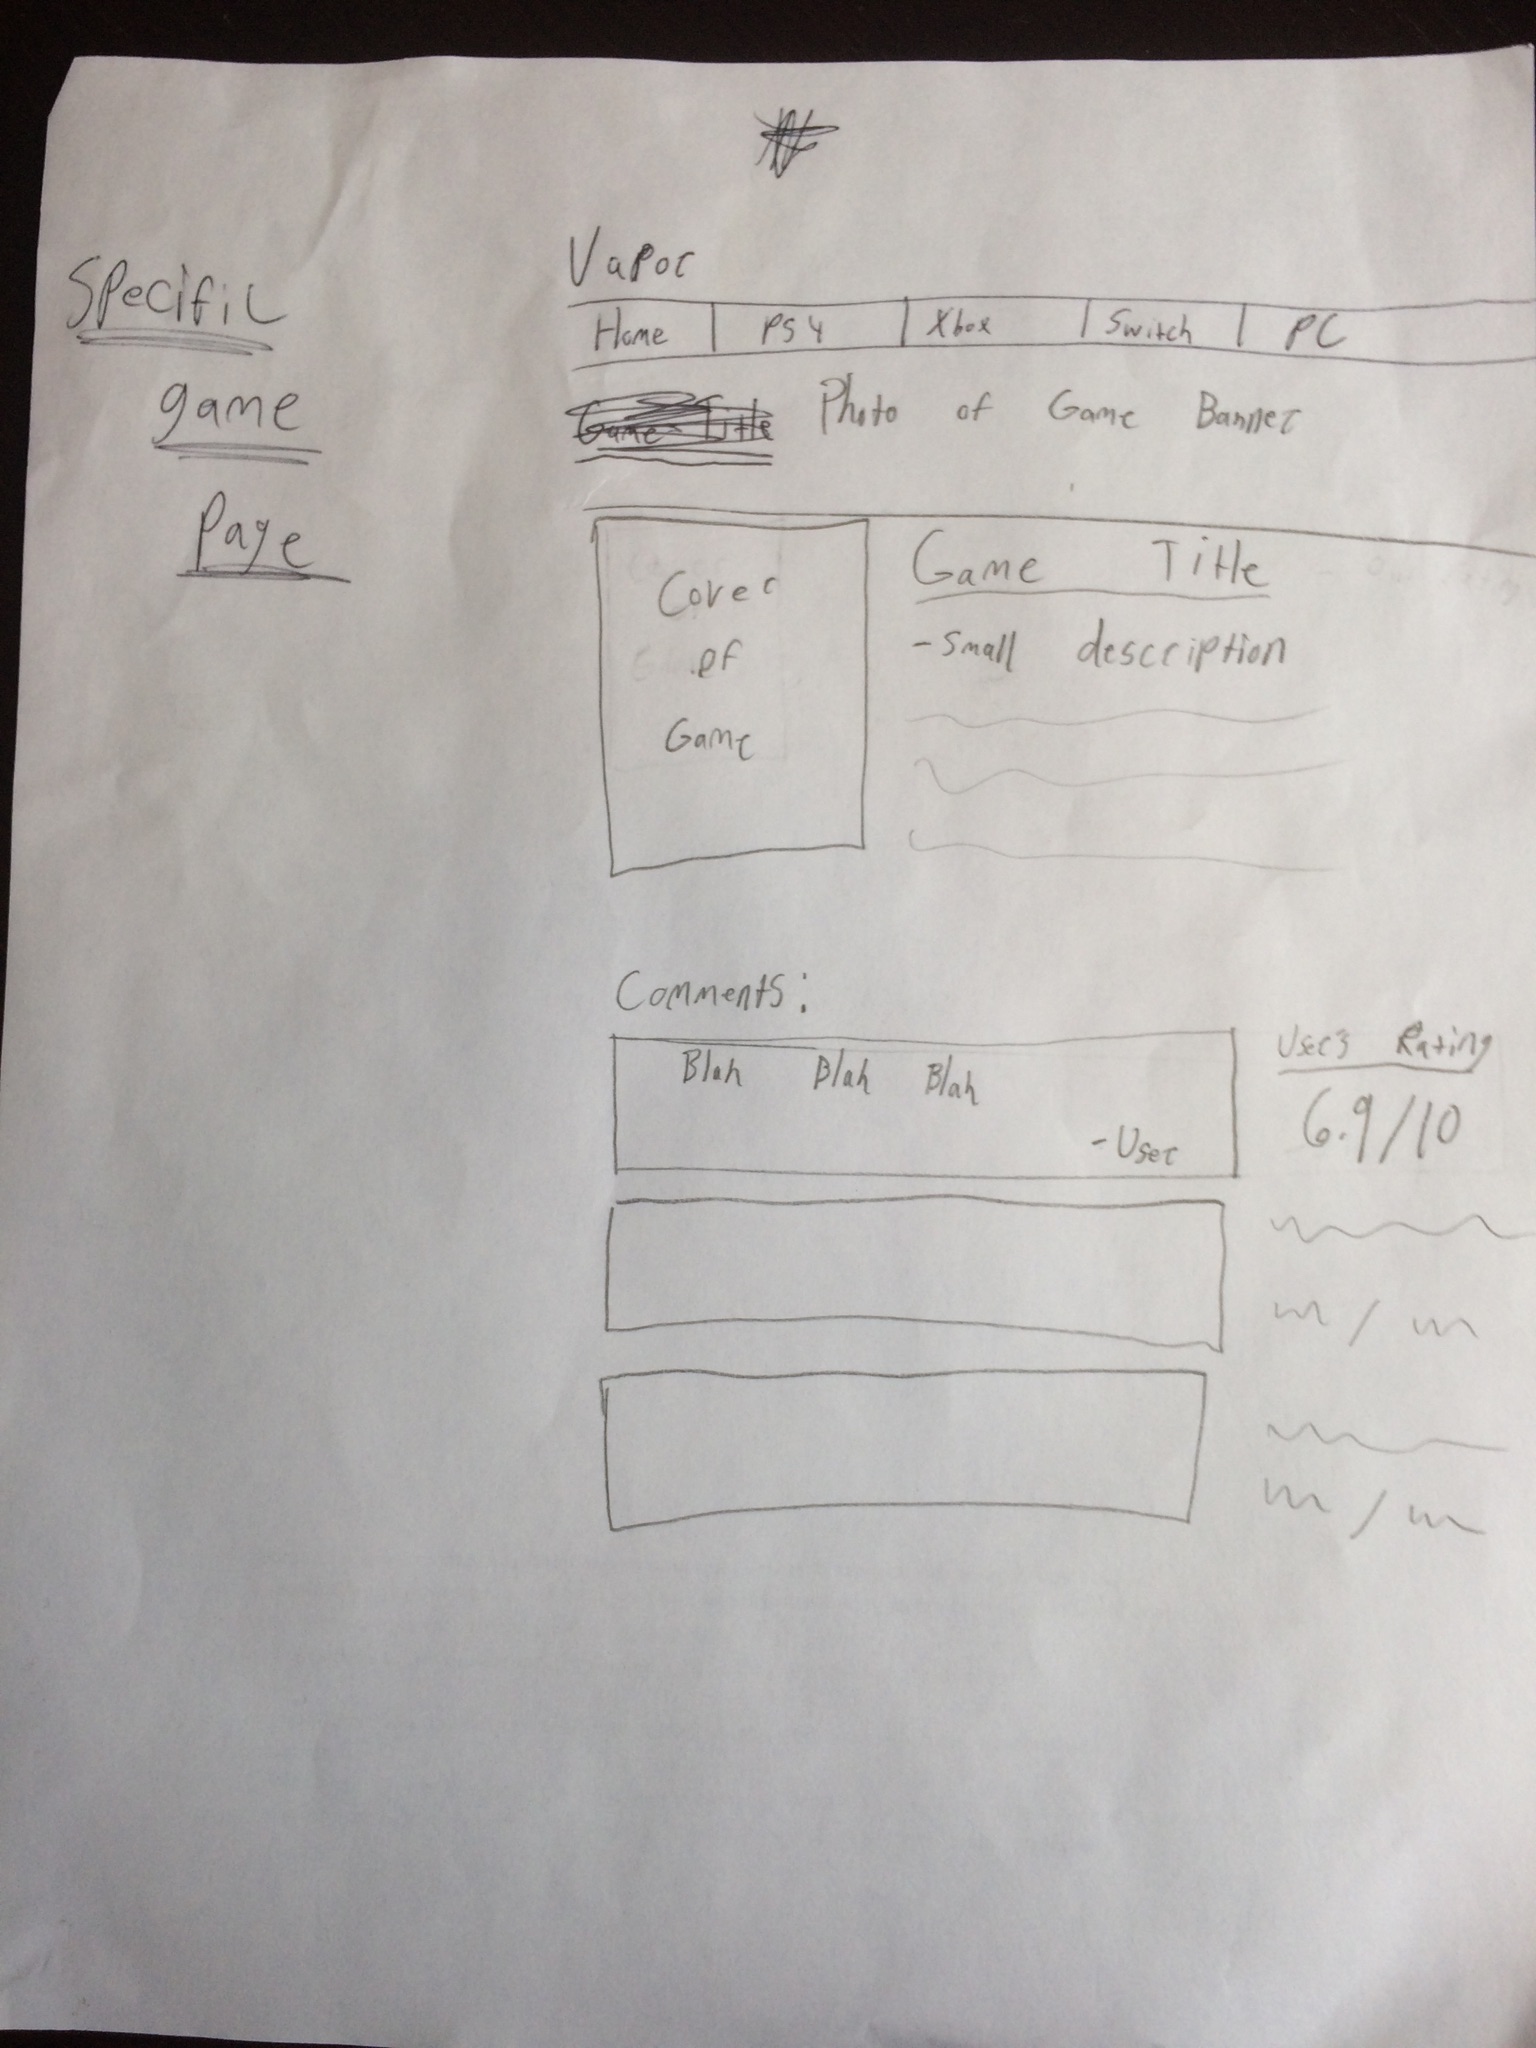 Specific
game
Page
Vapor
Home PS4 Xbox Switch PC
Game Title Photo of Game Banner
Cover
of
Game
Game Title
- Small description
Comments:
Blah Blah Blah
- User
Users Rating
6.9/10